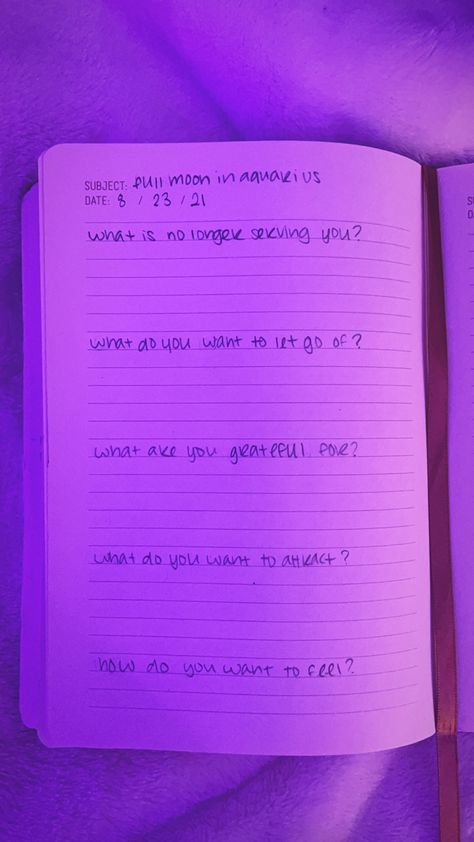 SUBJECT: full moon in aquarius
DATE: 8 / 23 / 21
what is no longer serving you?
what do you want to let go of?
what are you grateful for?
what do you want to attract?
how do you want to feel?